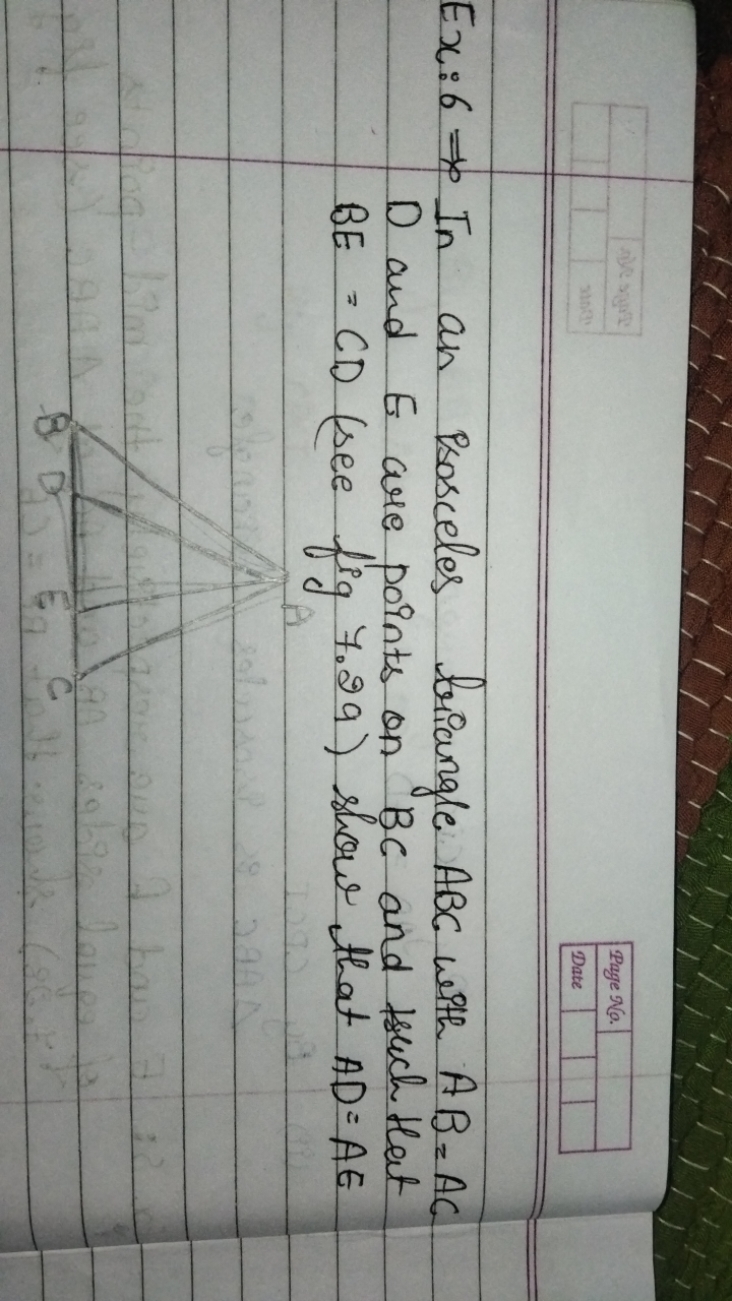 Page No.
Date
Ex:6 ⇒ In an isosceles triangle ABC with AB = AC
D and E are points on BC and such that
BE = CD (see fig 7.29) show that AD = AE
A
B D E C